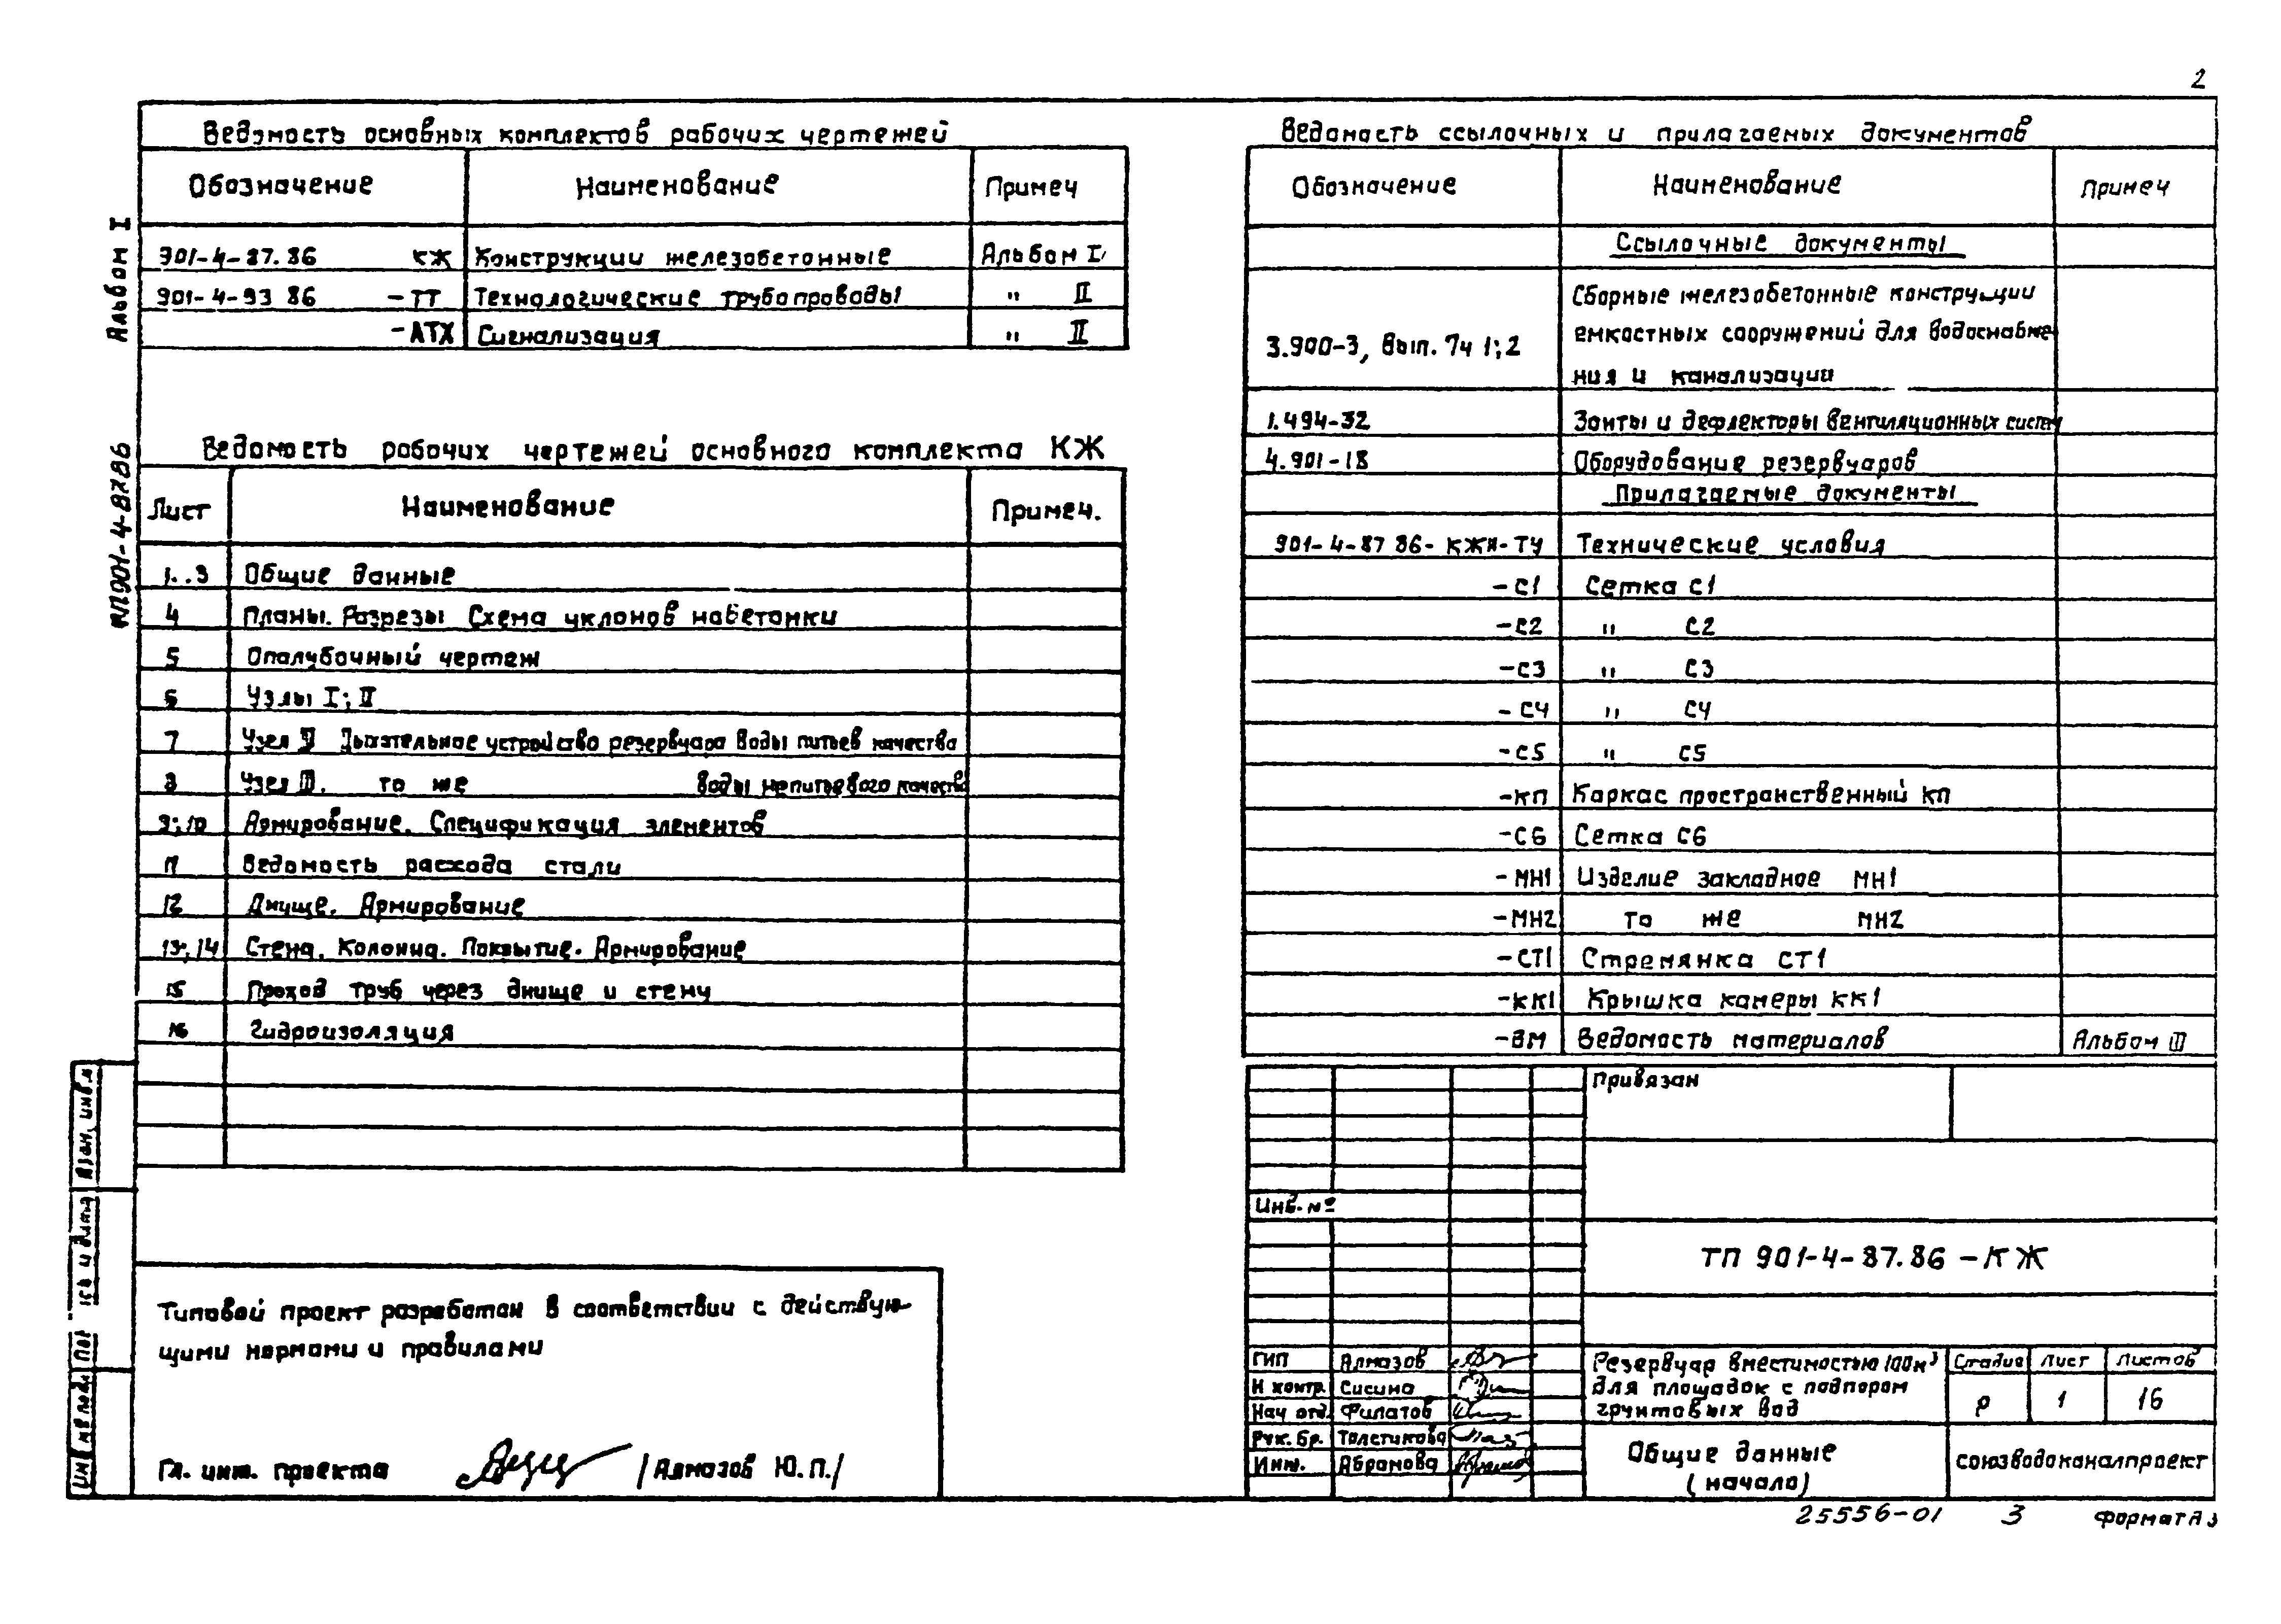 2
Ведомость основных комплектов рабочих чертежей
Обозначение Наименование Примеч
901-4-87.86 КЖ Конструкции железобетонные Альбом I
901-4-93 86 -ТТ Технологические трубопроводы " II
-АТХ Сигнализация " II
Ведомость рабочих чертежей основного комплекта КЖ
Лист Наименование Примеч.
1..3 Общие данные
4 Планы. Разрезы Схема уклонов набетонки
5 Опалубочный чертеж
6 Узлы I; II
7 Узел III Дыхательное устройство резервуара воды питьев качества
8 Узел III. то же воды непитьевого качества
9; 10 Армирование. Спецификация элементов
11 Ведомость расхода стали
12 Днище. Армирование
13; 14 Стена. Колонна. Покрытие. Армирование
15 Проход труб через днище и стену
16 Гидроизоляция
Типовой проект разработан в соответствии с действую-
щими нормами и правилами
Гл. инж. проекта /Алмазов Ю.П./
Альбом I
ТП901-4-8786
Взам. инв.
Ведомость ссылочных и прилагаемых документов
Обозначение Наименование Примеч
Ссылочные документы
Сборные железобетонные конструкции
3.900-3, вып. 7ч 1; 2 емкостных сооружений для водоснабже-
ния и канализации
1.494-32 Зонты и дефлекторы вентиляционных систем
4.901-18 Оборудование резервуаров
Прилагаемые документы
901-4-87 86- КЖИ-ТУ Технические условия
-С1 Сетка С1
-С2 " С2
-С3 " С3
-С4 " С4
-С5 " С5
-КП Каркас пространственный КП
-С6 Сетка С6
-МН1 Изделие закладное МН1
-МН2 то же МН2
-СТ1 Стремянка СТ1
-КК1 Крышка камеры КК1
-ВМ Ведомость материалов Альбом III
Привязан
Инв. №
ТП 901-4-87.86 -КЖ
ГИП Алмазов
Н контр. Сисина
Нач отд. Филатов
Рук. бр. Толстикова
Инж. Абрамова
Резервуар вместимостью 100м³
для площадок с подпором
грунтовых вод
Стадия Лист Листов
Р 1 16
Общие данные
(начало)
Союзводоканалпроект
25556-01 3 Формат А3